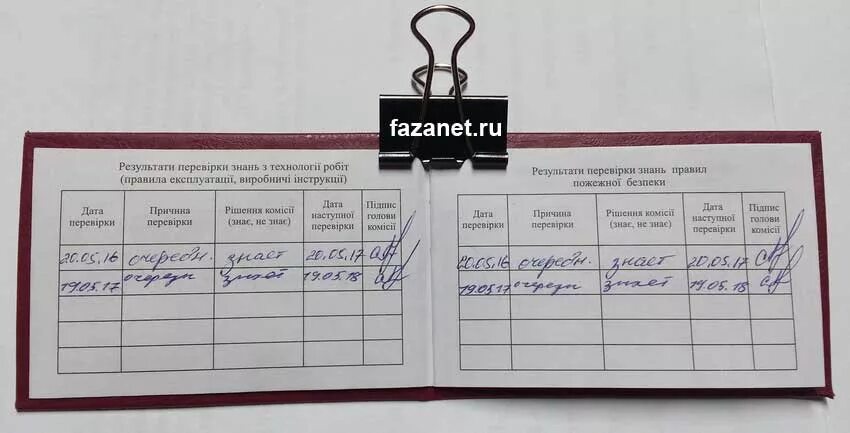 fazanet.ru
Результати перевірки знань з технології робіт
(правила експлуатації, виробничі інструкції)
Дата перевірки Причина перевірки Рішення комісії (знає, не знає) Дата наступної перевірки Підпис голови комісії
20.05.16 очередн. знает 20.05.17
19.05.17 очередн знает 19.05.18
Результати перевірки знань правил
пожежної безпеки
Дата перевірки Причина перевірки Рішення комісії (знає, не знає) Дата наступної перевірки Підпис голови комісії
20.05.16 очередн. знает 20.05.17
19.05.17 очередн знает 19.05.18